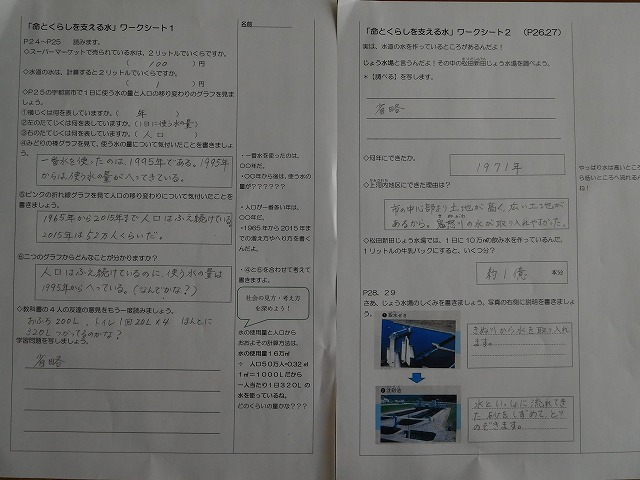 「命とくらしを支える水」ワークシート１
名前
P２４～P２５　読みます。
◇スーパーマーケットで売られている水は、２リットルでいくらですか。
（　１００　）円
◇水道の水は、計算すると２リットルでいくらですか。
（　１　）円
◇P２５の宇都宮市で１日に使う水の量と人口の移り変わりのグラフを見ましょう。
①横じくは何を表していますか。（　年　）
②左のたてじくは何を表していますか。（１日に使う水の量）
③右のたてじくは何を表していますか。（　人口　）
④みどりの棒グラフを見て、使う水の量について気付いたことを書きましょう。
一番水を使ったのは、１９９５年である。１９９５年
からは使う水の量がへってきている。
⑤ピンクの折れ線グラフを見て人口の移り変わりについて気付いたことを書きましょう。
１９６５年から２０１５年まで人口はふえ続けている。
２０１５年は５２万人くらいだ。
⑥二つのグラフからどんなことが分かりますか？
人口はふえ続けているのに、使う水の量は
１９９５年からへっている。（なんでかな？）
◇教科書の４人の友達の意見をもう一度読みましょう。
おふろ２００Ｌ、トイレ１回２０Ｌ×４　ほんとに
３２０Ｌつかってるのかな？
学習問題を写しましょう。
省略
・一番水を使ったのは、
〇〇年だ。
・〇〇年から後は、使う水の
量が？？？？？？
・人口が一番多い年は、
〇〇年だ。
・1965 年から 2015 年まで
の増え方やへり方を書くんだよ。
・④と⑤を合わせて考えて
書きますよ。
社会の見方・考え方
を深めよう！
水の使用量と人口から
おおよその計算方法は、
水の使用量１６万㎥
÷　人口５０万人＝０.３２㎥
１㎥＝１０００Ｌだから
一人当たり１日３２０Ｌの
水を使っているね。
どのくらいの量かな？？？
「命とくらしを支える水」ワークシート２　（P26,27）
実は、水道の水を作っているところがあるんだよ！
じょう水場と言うんだよ！その中の松田新田じょう水場を調べよう。
＊【調べる】を写します。
省略
◇何年にできたか。
１９７１年
◇上河内地区にできた理由は？
市の中心部より土地が高く、広い土地が
あるから。鬼怒川の水が取り入れやすかった。
やっぱり水は高いところか
ら低いところへ流れるんだ
ね！
◇松田新田じょう水場では、１日に１０万㎥の飲み水を作っているんだ。
１リットルの牛乳パックにすると、いくつ分？
約１億
本分
P２８、２９
さあ、じょう水場のしくみを書きましょう。写真の右側に説明を書きましょう。
❶取水せき
きぬ川から水を取り入れ
ます。
水といっしょに流れてきた
のぞきます。